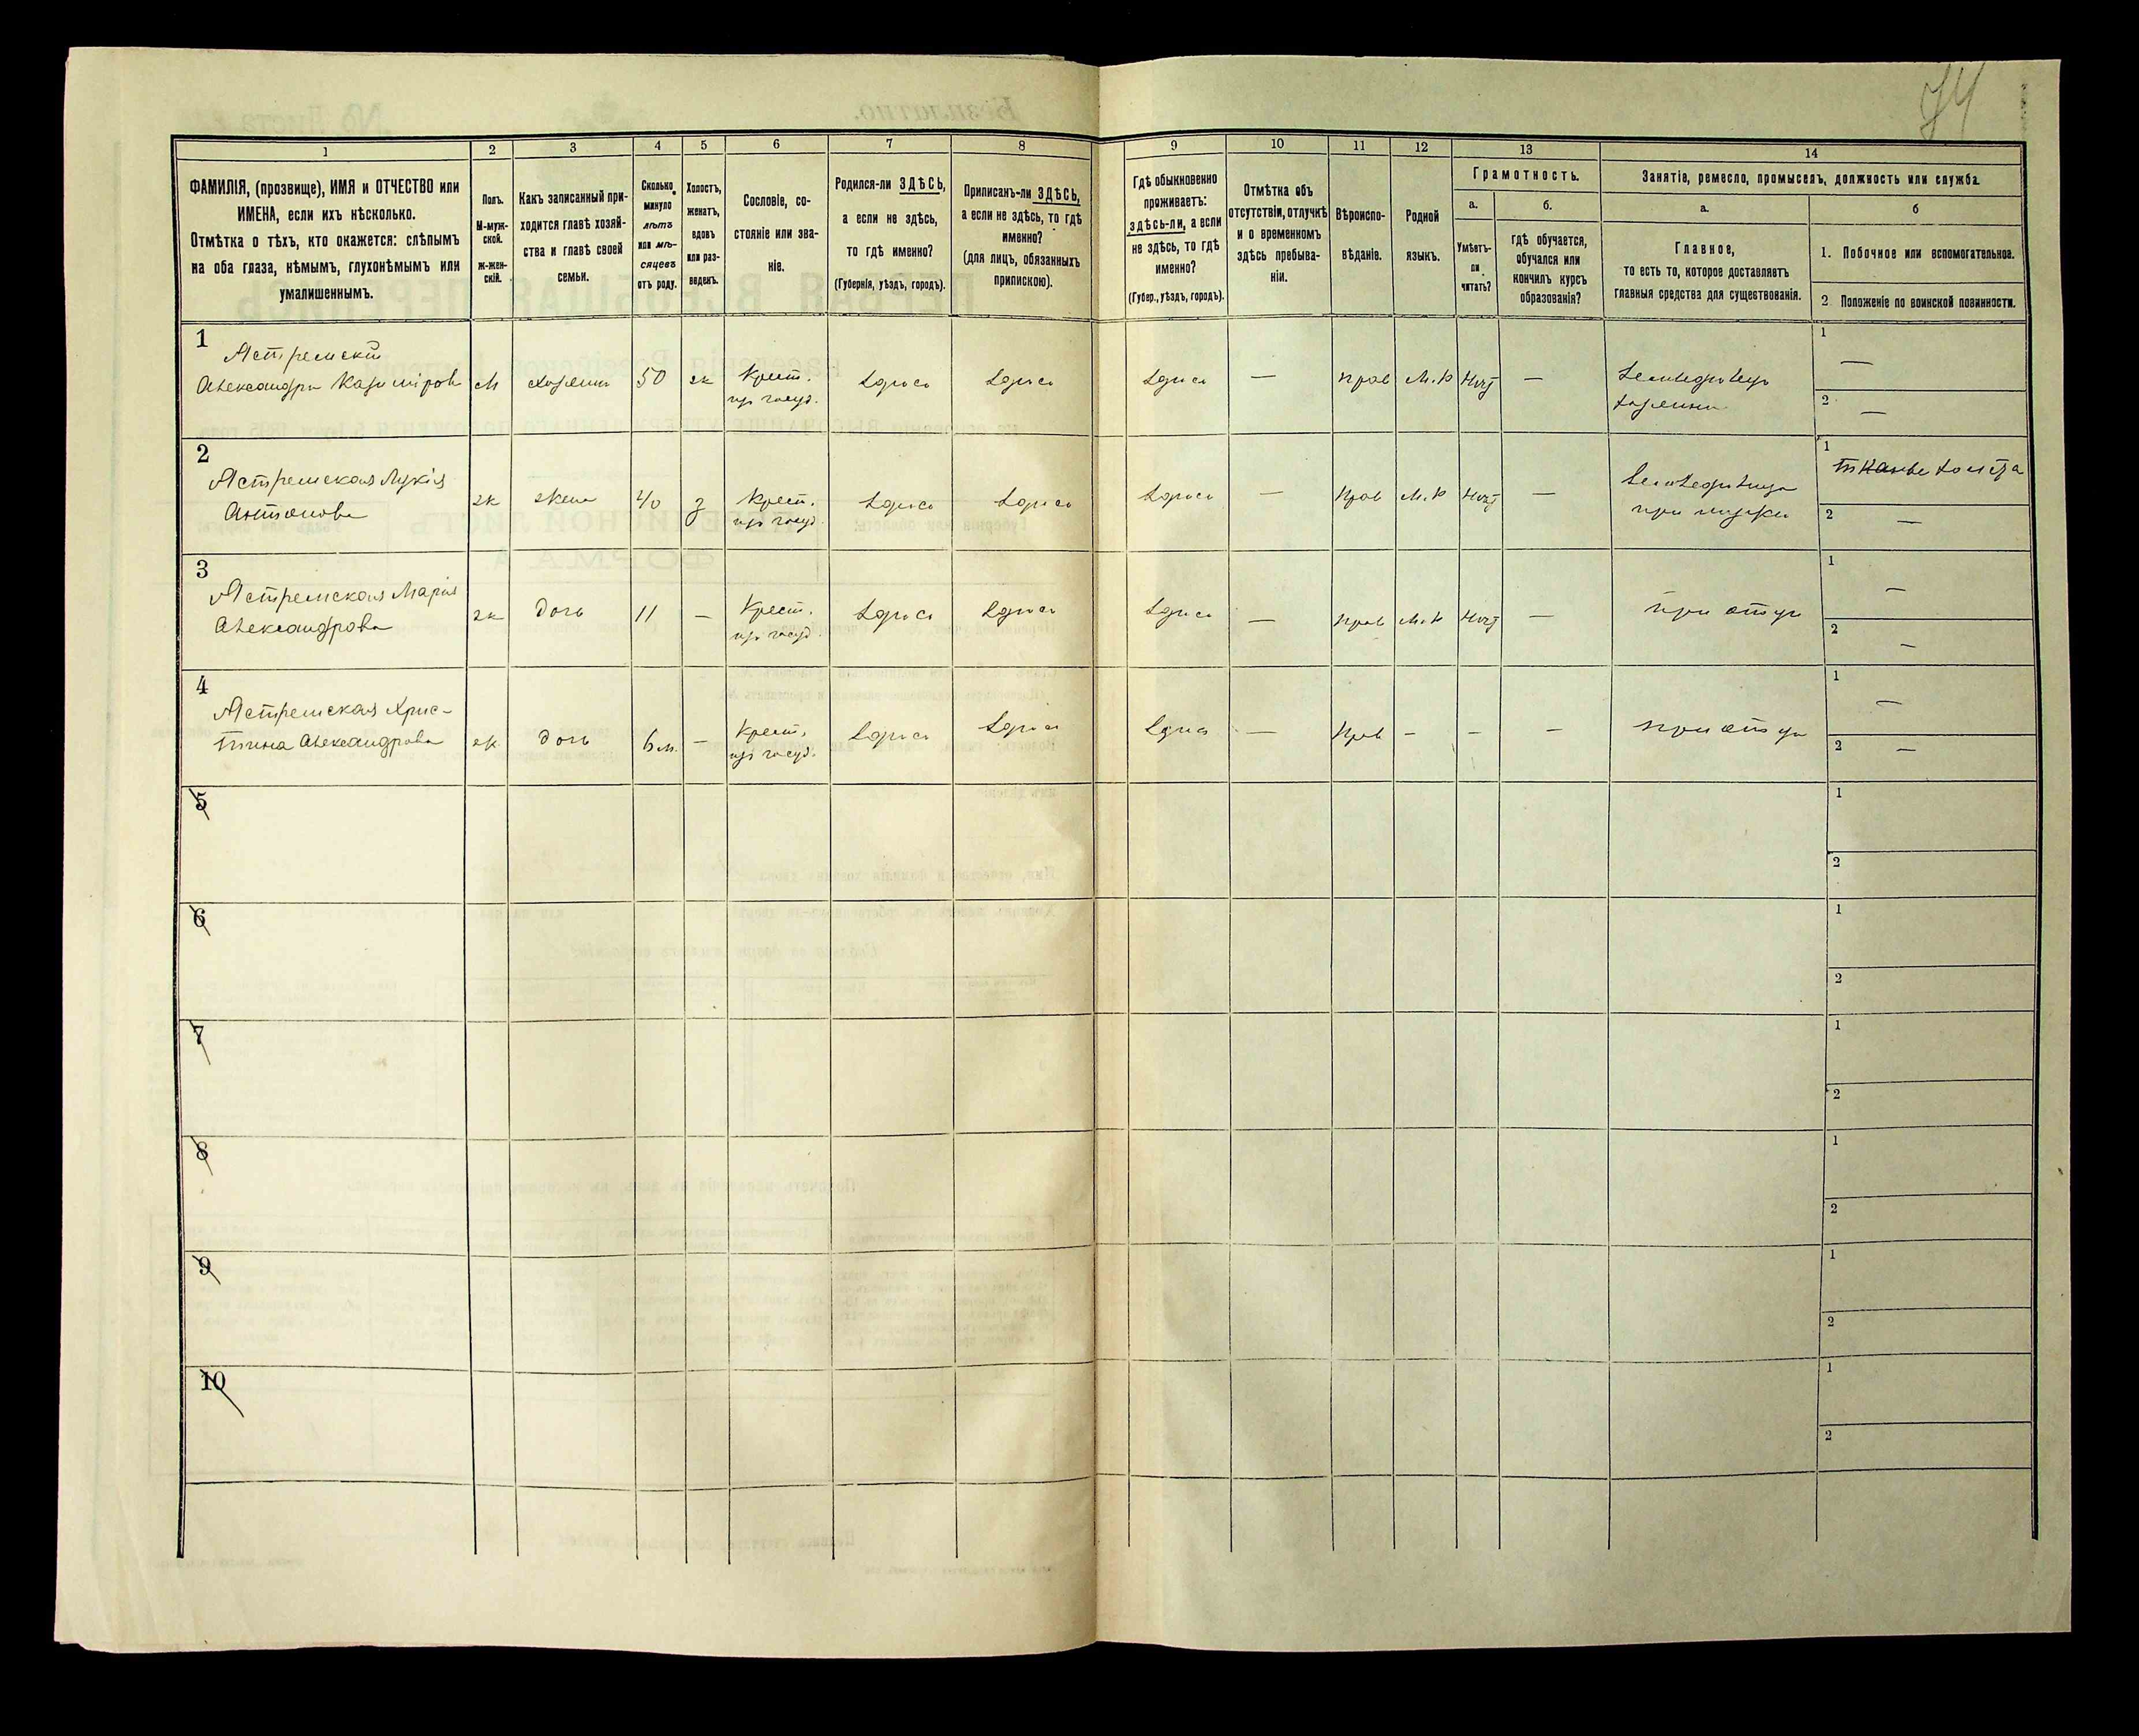 74
1
2
3
4
5
6
7
8
9
10
11
12
13
14
ФАМИЛІЯ, (прозвище), ИМЯ и ОТЧЕСТВО или
ИМЕНА, если ихъ нѣсколько.
Отмѣтка о тѣхъ, кто окажется: слѣпымъ
на оба глаза, нѣмымъ, глухонѣмымъ или
умалишеннымъ.
Полъ.
М-муж-
ской.
ж-жен-
скій.
Какъ записанный при-
ходится главѣ хозяй-
ства и главѣ своей
семьи.
Сколько
минуло
лѣтъ
или мѣ-
сяцевъ
отъ роду.
Холостъ,
женатъ,
вдовъ
или раз-
веденъ.
Сословіе, со-
стояніе или зва-
ніе.
Родился-ли ЗДѢСЬ,
а если не здѣсь,
то гдѣ именно?
(Губернія, уѣздъ, городъ).
Приписанъ-ли ЗДѢСЬ,
а если не здѣсь, то гдѣ
именно?
(для лицъ, обязанныхъ
припискою).
Гдѣ обыкновенно
проживаетъ:
здѣсь-ли, а если
не здѣсь, то гдѣ
именно?
(Губер., уѣздъ, городъ).
Отмѣтка объ
отсутствіи, отлучкѣ
и о временномъ
здѣсь пребыва-
ніи.
Вѣроиспо-
вѣданіе.
Родной
языкъ.
Грамотность.
а.
Умѣетъ-
ли
читать?
б.
гдѣ обучается,
обучался или
кончилъ курсъ
образованія?
Занятіе, ремесло, промыселъ, должность или служба.
а.
Главное,
то есть то, которое доставляетъ
главныя средства для существованія.
б
1. Побочное или вспомогательное.
2 Положеніе по воинской повинности.
1
Ястремскій
Александръ Казиміров
М
хозяинъ
50
ж
Крест.
изъ госуд.
здѣсь
здѣсь
здѣсь
—
прав
М.Р
нѣтъ
—
Земледѣлецъ
хозяинъ
1
—
2
—
2
Ястремская Лукія
Антонова
ж
жена
40
з
Крест.
изъ госуд.
здѣсь
здѣсь
здѣсь
—
Прав
М.Р
нѣтъ
—
Земледѣлица
при мужѣ
1
тканье холста
2
—
3
Ястремская Марія
Александрова
ж
дочь
11
—
Крест.
изъ госуд.
здѣсь
здѣсь
здѣсь
—
прав
М.Р
нѣтъ
—
при отцѣ
1
—
2
—
4
Ястремская Хрис-
тина Александрова
ж
дочь
6 м.
—
Крест.
изъ госуд.
здѣсь
здѣсь
здѣсь
—
Прав
—
—
—
при отцѣ
1
—
2
—
5
1
2
6
1
2
7
1
2
8
1
2
9
1
2
10
1
2